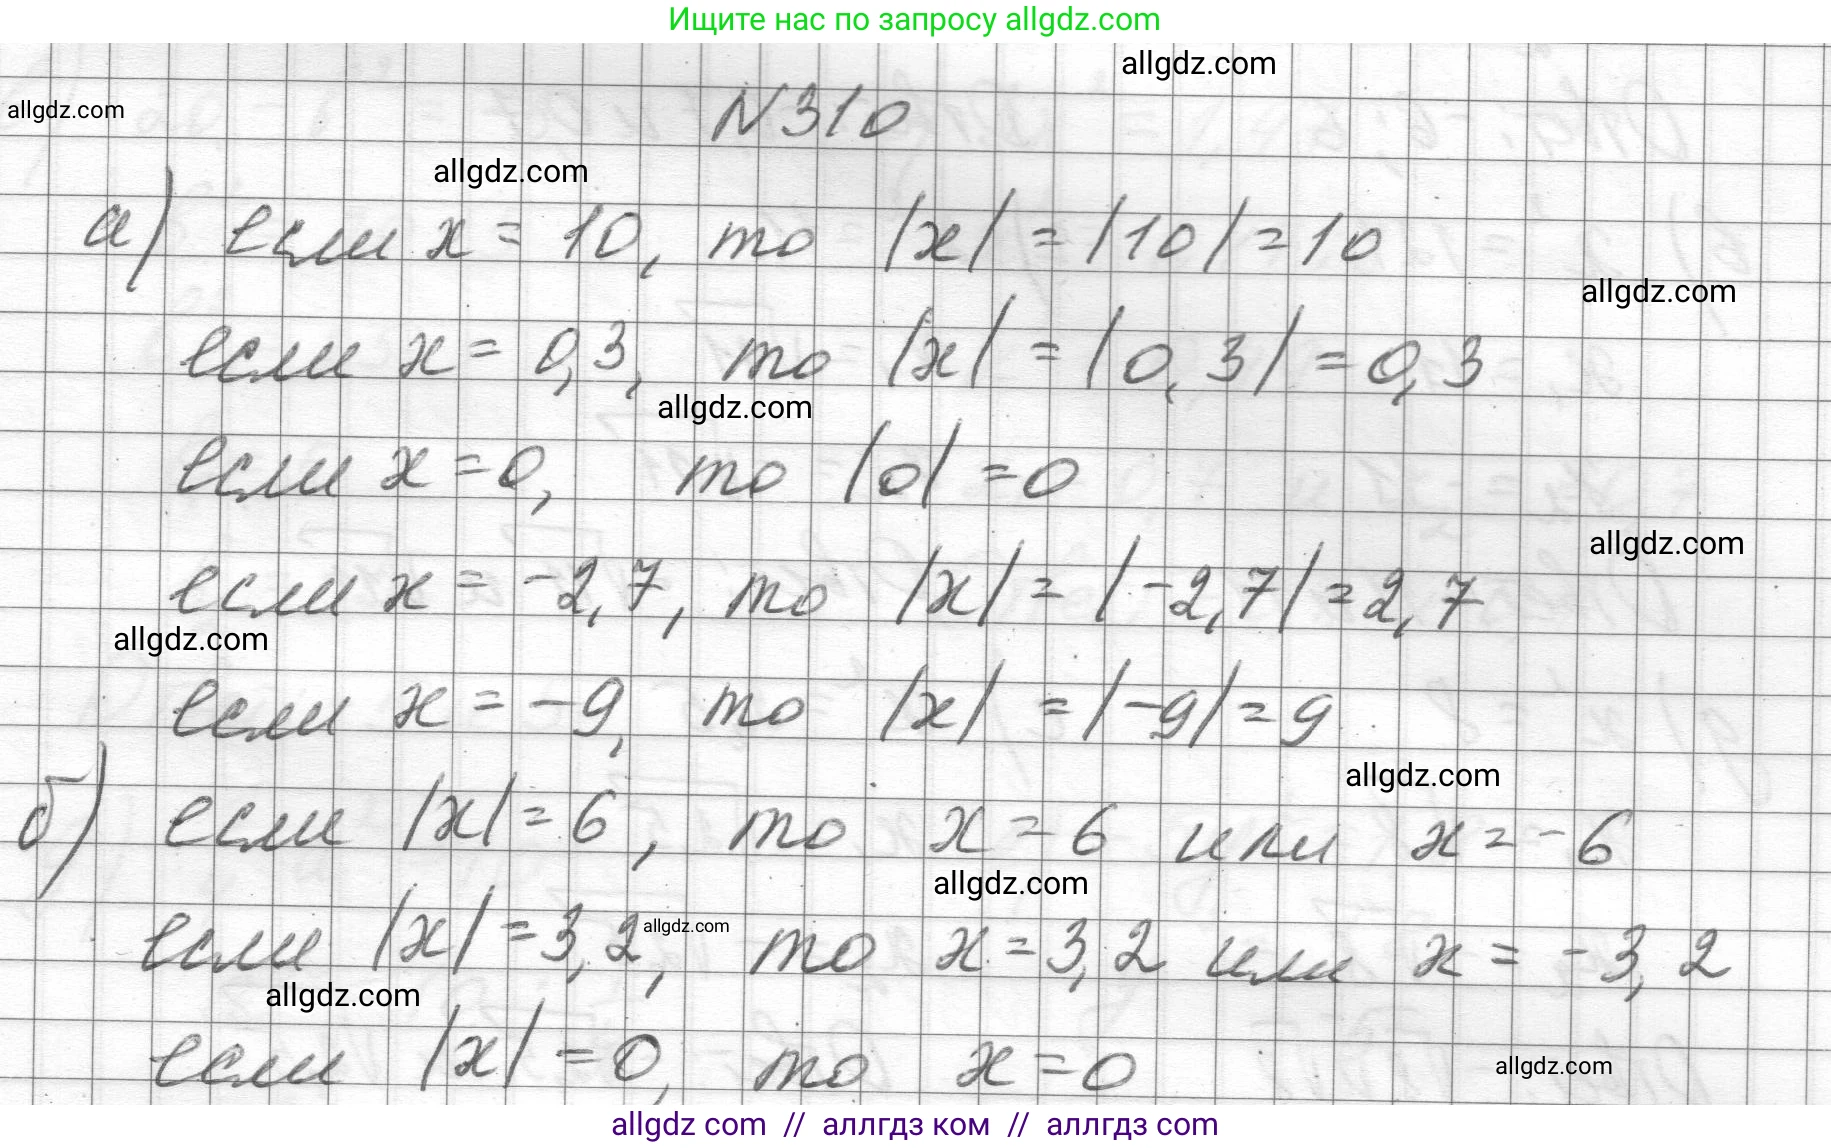 Ищите нас по запросу allgdz.com
allgdz.com
allgdz.com
N310
allgdz.com
а) если x = 10, то |x| = |10| = 10
allgdz.com
если x = 0,3, то |x| = |0,3| = 0,3
allgdz.com
если x = 0, то |0| = 0
allgdz.com
если x = -2,7, то |x| = |-2,7| = 2,7
allgdz.com
если x = -9, то |x| = |-9| = 9
allgdz.com
б) если |x| = 6, то x = 6 или x = -6
allgdz.com
если |x| = 3,2, то x = 3,2 или x = -3,2
allgdz.com
allgdz.com
если |x| = 0, то x = 0
allgdz.com
allgdz com // аллгдз ком // аллгдз com